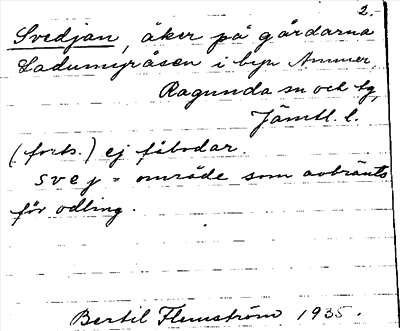 2.-
Svedjan, åker på gårdarna
Ladumyråsen i byn Ammer,
Ragunda sn och tg,
Jämtl. l.
(forts.) ej fäbodar.
svej = område som avbränts
för odling.
Bertil Flemström 1935.